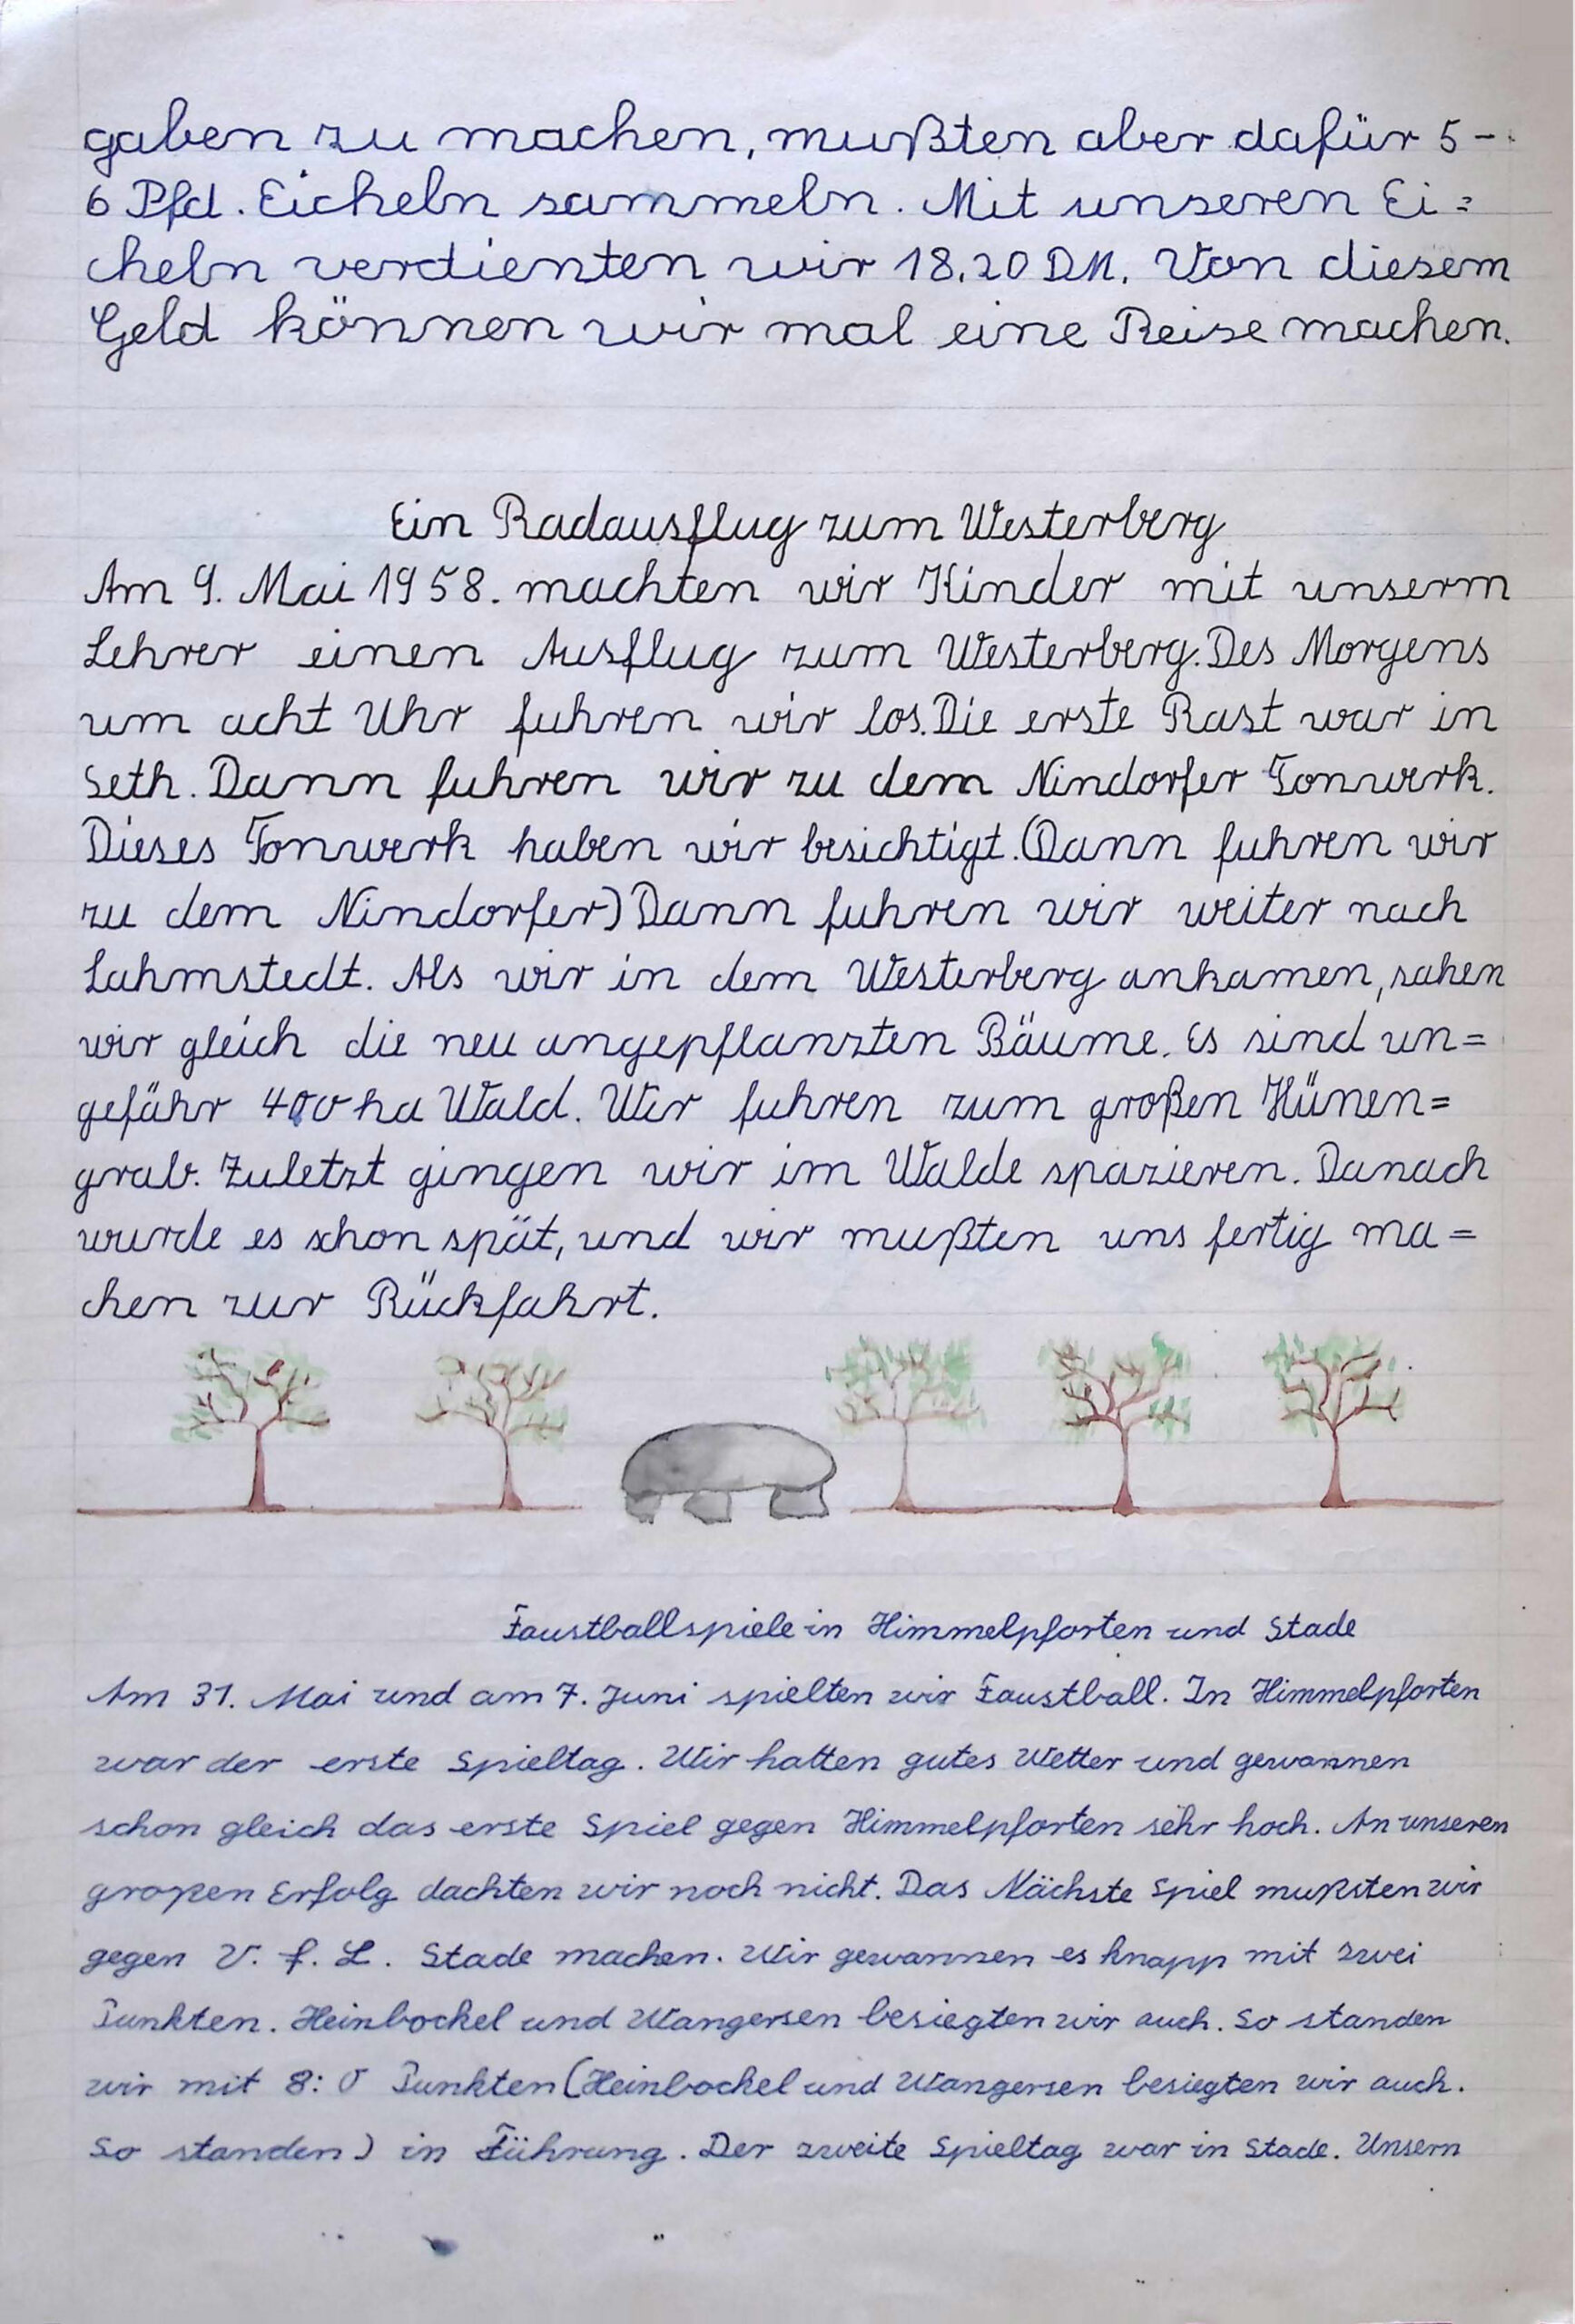 gaben zu machen, mußten aber dafür 5-
6 Pfd. Eicheln sammeln. Mit unseren Ei=
cheln verdienten wir 18,20 DM. Von diesem
Geld können wir mal eine Reise machen.
Ein Radausflug zum Westerberg
Am 9. Mai 1958. machten wir Kinder mit unserm
Lehrer einen Ausflug zum Westerberg. Des Morgens
um acht Uhr fuhren wir los. Die erste Rast war in
Seth. Dann fuhren wir zu dem Nindorfer Tonwerk.
Dieses Tonwerk haben wir besichtigt. (Dann fuhren wir
zu dem Nindorfer) Dann fuhren wir weiter nach
Lahmstedt. Als wir in dem Westerberg ankamen, sahen
wir gleich die neu angepflanzten Bäume. Es sind un=
gefähr 400 ha Wald. Wir fuhren zum großen Hünen=
grab. Zuletzt gingen wir im Walde spazieren. Danach
wurde es schon spät, und wir mußten uns fertig ma=
chen zur Rückfahrt.
Faustballspiele in Himmelpforten und Stade
Am 31. Mai und am 7. Juni spielten wir Faustball. In Himmelpforten
war der erste Spieltag. Wir hatten gutes Wetter und gewannen
schon gleich das erste Spiel gegen Himmelpforten sehr hoch. An unseren
großen Erfolg dachten wir noch nicht. Das Nächste Spiel mußsten wir
gegen V. f. L. Stade machen. Wir gewannen es knapp mit zwei
Punkten. Heinbockel und Wangersen besiegten wir auch. So standen
wir mit 8:0 Punkten (Heinbockel und Wangersen besiegten wir auch.
So standen) in Führung. Der zweite Spieltag war in Stade. Unsern